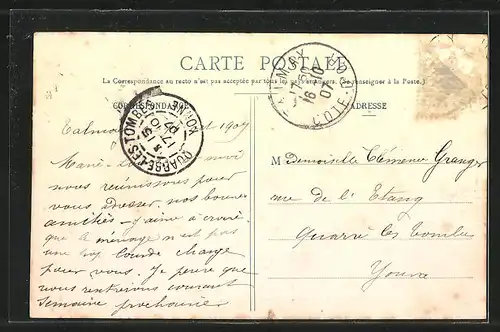 CARTE POSTALE
La Correspondance au recto n'est pas acceptée par tous les pays étrangers. (Se renseigner à la Poste.)
CORRESPONDANCE
ADRESSE
TALMAY
CÔTE-D'OR
17 30
16 10
07
QUARRÉ-LES-TOMBES
YONNE
17 10
07
Talmay 1907
nous réunissons pour
vous adresser nos bonnes
amitiés - j'aime à croire
que le ménage n'est pas
une trop lourde charge
pour vous. Je pense que
nous rentrerons courant
semaine prochaine
Mademoiselle Clémence Granger
rue de l'Etang
Quarré les Tombes
Yonne